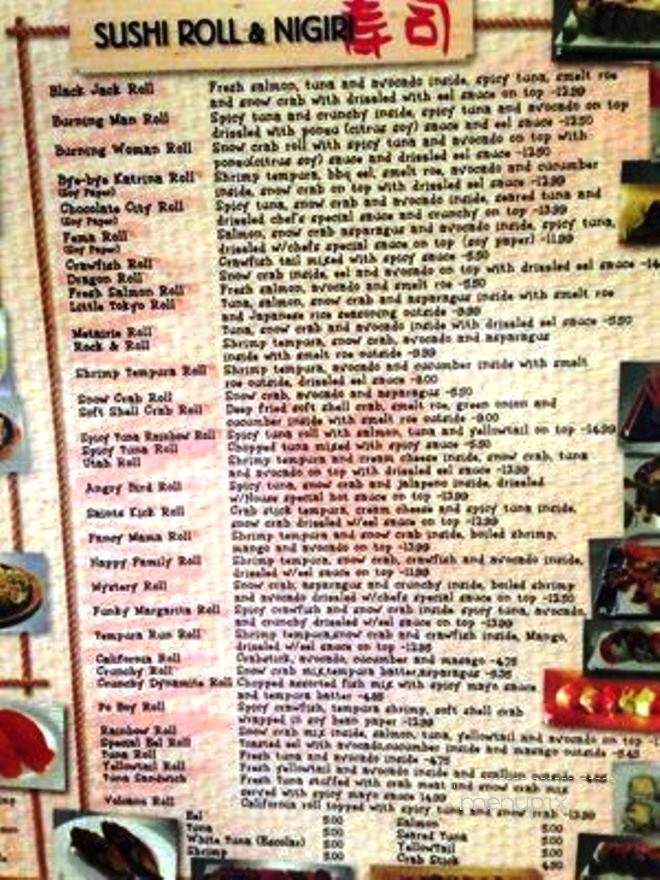 SUSHI ROLL & NIGIRI 寿司
Black Jack Roll Fresh salmon, tuna and avocado inside, spicy tuna, smelt roe
and snow crab with drissled with eel sauce on top -13.99
Burning Man Roll Spicy tuna and crunchy inside, spicy tuna and avocado on top
drissled with ponsu (citrus soy) sauce and eel sauce -13.50
Burning Woman Roll Snow crab roll with spicy tuna and avocado on top with
ponsu(citrus soy) sauce and drissled eel sauce -13.50
Bye-bye Katrina Roll Shrimp tempura, bbq eel, smelt roe, avocado and cucumber
(Soy Paper) inside, snow crab on top with drissled eel sauce -13.99
Chocolate City Roll Spicy tuna, snow crab and avocado inside, seared tuna and
(Soy Paper) drissled chef's special sauce and crunchy on top -13.99
Fema Roll Salmon, snow crab asparagus and avocado inside, spicy tuna,
(Soy Paper) drissled w/chefs special sauce on top (soy paper) -11.99
Crawfish Roll Crawfish tail mixed with spicy sauce -5.50
Dragon Roll Snow crab inside, eel and avocado on top with drissled eel sauce
Fresh Salmon Roll Fresh salmon, avocado and smelt roe -5.50
Little Tokyo Roll Tuna, salmon, snow crab and asparagus inside with smelt roe
and Japanese rice seasoning outside -9.99
Metairie Roll Tuna, snow crab and avocado inside with drissled eel sauce -5.50
Rock & Roll Shrimp tempura, snow crab, avocado and asparagus
inside with smelt roe outside -9.99
Shrimp Tempura Roll Shrimp tempura, avocado and cucumber inside with smelt
roe outside, drissled eel sauce -8.00
Snow Crab Roll Snow crab, avocado and asparagus -5.50
Soft Shell Crab Roll Deep fried soft shell crab, smelt roe, green onion and
cucumber inside with smelt roe outside -9.00
Spicy Tuna Rainbow Roll Spicy tuna roll with salmon, tuna and yellowtail on top -14.99
Spicy Tuna Roll Chopped tuna mixed with spicy sauce -5.50
Utah Roll Shrimp tempura and cream cheese inside, snow crab, tuna
and avocado on top with drissled eel sauce -13.99
Angry Bird Roll Spicy tuna, snow crab and jalapeno inside, drissled
w/House special hot sauce on top -13.99
Saints Kick Roll Crab stick tempura, cream cheese and spicy tuna inside,
snow crab drissled w/eel sauce on top -13.99
Fancy Mama Roll Shrimp tempura and snow crab inside, boiled shrimp,
mango and avocado on top -13.99
Happy Family Roll Shrimp tempura, snow crab, crawfish and avocado inside,
drissled w/eel sauce on top -11.99
Mystery Roll Snow crab, asparagus and crunchy inside, boiled shrimp
and avocado drissled w/chefs special sauce on top -13.50
Funky Margarita Roll Spicy crawfish and snow crab inside spicy tuna, avocado,
and crunchy drissled w/eel sauce on top -13.99
Tempura Run Roll Shrimp tempura,snow crab and crawfish inside, Mango,
drissled w/eel sauce on top
California Roll Crabstick, avocado, cucumber and masago -4.75
Crunchy Roll Snow crab mix,tempura batter,asparagus
Crunchy Dynamite Roll Chopped assorted fish mix with spicy mayo sauce
and tempura batter
Po Boy Roll Spicy crawfish, tempura shrimp, soft shell crab
wrapped in soy bean paper -13.99
Rainbow Roll Snow crab mix inside, salmon, tuna, yellowtail and avocado on top
Special Eel Roll Toasted eel with avocado,cucumber inside and masago outside
Tuna Roll Fresh tuna and avocado inside -4.75
Yellowtail Roll Fresh yellowtail and avocado inside and scallion outside
Tuna Sandwich Fresh Tuna stuffed with crab meat and snow crab mix
served with spicy mayo sauce 14.99
Volcano Roll California roll topped with spicy tuna and snow crab -13.99
menupix
Eel 5.00 Salmon 5.00
Tuna 5.00 Seared Tuna 5.00
White Tuna (Escolar) 5.00 Yellowtail 5.00
Shrimp 5.00 Crab Stick 4.50